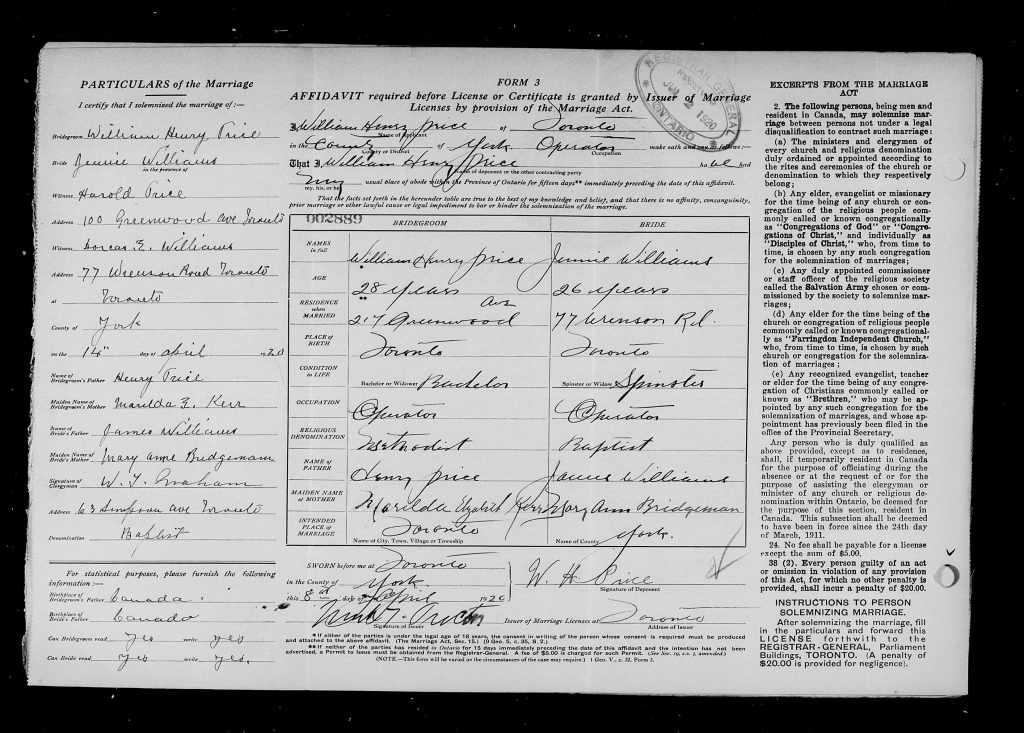 PARTICULARS of the Marriage
I certify that I solemnized the marriage of:—
Bridegroom William Henry Price
Bride Jennie Williams
in the presence of
Witness Harold Price
Address 100 Greenwood Ave Toronto
Witness Dorcas E. Williams
Address 77 Wrenson Road Toronto
at Toronto
County of York
on the 14th day of April 1920
Name of Bridegroom's Father Henry Price
Maiden Name of Bridegroom's Mother Marilda E. Kerr
Name of Bride's Father James Williams
Maiden Name of Bride's Mother Mary Anne Bridgemann
Signature of Clergyman W. T. Graham
Address 63 Simpson Ave Toronto
Denomination Baptist
For statistical purposes, please furnish the following
information:—
Birthplace of Bridegroom's Father Canada
Birthplace of Bride's Father Canada
Can Bridegroom read Yes write yes
Can Bride read Yes write yes.
FORM 3
AFFIDAVIT required before License or Certificate is granted by Issuer of Marriage
Licenses by provision of the Marriage Act.
REGISTRAR GENERAL
1920
ONTARIO
I, William Henry Price of Toronto
Name of Applicant
in the County of York Operator make oath and say as follows:—
County or District
Occupation
That I, William Henry Price have had
Name of deponent or the other contracting party
my usual place of abode within the Province of Ontario for fifteen days** immediately preceding the date of this affidavit.
my, his, or her
That the facts set forth in the hereunder table are true to the best of my knowledge and belief, and that there is no affinity, consanguinity,
prior marriage or other lawful cause or legal impediment to bar or hinder the solemnization of the marriage.
002889
BRIDEGROOM
BRIDE
NAMES in full William Henry Price Jennie Williams
AGE 28 years 26 years
RESIDENCE when MARRIED 217 Greenwood Ave 77 Wrenson Rd.
PLACE OF BIRTH Toronto Toronto
CONDITION in LIFE Bachelor or Widower Bachelor Spinster or Widow Spinster
OCCUPATION Operator Operator
RELIGIOUS DENOMINATION Methodist Baptist
NAME OF FATHER Henry Price James Williams
MAIDEN NAME of MOTHER Marilda Elizabeth Kerr Mary Ann Bridgeman
INTENDED PLACE OF MARRIAGE Toronto York.
Name of City, Town, Village or Township
Name of County
SWORN before me at Toronto
in the County of York
this 8th day of April 1920
W. H. Price
Signature of Deponent
Signature of Issuer
Issuer of Marriage Licenses at Toronto
Address of Issuer
* If either of the parties is under the legal age of 18 years, the consent in writing of the person whose consent is required must be produced
and attached to the above affidavit. (The Marriage Act, Sec. 15.) (9 Geo. 5, c. 35, S. 2.)
** If neither of the parties has resided in Ontario for 15 days immediately preceding the date of this affidavit and the intention has not been
advertised, a Permit to Issue must be obtained from the Registrar-General. A fee of $5.00 is charged for such Permit.
(NOTE.—This form will be varied as the circumstances of the case may require.) 1 Geo. V., c. 32, Form 3.
EXCERPTS FROM THE MARRIAGE
ACT
2. The following persons, being men and
resident in Canada, may solemnize mar-
riage between persons not under a legal
disqualification to contract such marriage:
(a) The ministers and clergymen of
every church and religious denomination
duly ordained or appointed according to
the rites and ceremonies of the church or
denomination to which they respectively
belong;
(b) Any elder, evangelist or missionary
for the time being of any church or con-
gregation of the religious people com-
monly called or known congregationally
as "Congregations of God" or "Congre-
gations of Christ," and individually as
"Disciples of Christ," who, from time to
time, is chosen by any such congregation
for the solemnization of marriages;
(c) Any duly appointed commissioner
or staff officer of the religious society
called the Salvation Army chosen or com-
missioned by the society to solemnize mar-
riages;
(d) Any elder for the time being of the
church or congregation of religious people
commonly called or known congregational-
ly as "Farringdon Independent Church,"
who, from time to time, is chosen by such
church or congregation for the solemniza-
tion of marriages;
(e) Any recognized evangelist, teacher
or elder for the time being of any congre-
gation of Christians commonly called or
known as "Brethren," who may be ap-
pointed by any such congregation for the
solemnization of marriages, and whose ap-
pointment has previously been filed in the
office of the Provincial Secretary.
Any person who is duly qualified as
above provided, except as to residence,
shall, if temporarily resident in Canada
for the purpose of officiating during the
absence or at the request of or for the
purpose of assisting the clergyman or
minister of any church or religious de-
nomination within Ontario, be deemed for
the purpose of this section, resident in
Canada. This subsection shall be deemed
to have been in force since the 24th day
of March, 1911.
24. No fee shall be payable for a license
except the sum of $5.00.
38 (2). Every person guilty of an act
or omission in violation of any provision
of this Act, for which no other penalty is
provided, shall incur a penalty of $20.00.
INSTRUCTIONS TO PERSON
SOLEMNIZING MARRIAGE.
After solemnizing the marriage, fill
in the particulars and forward this
LICENSE forthwith to the
REGISTRAR-GENERAL, Parliament
Buildings, TORONTO. (A penalty of
$20.00 is provided for negligence).